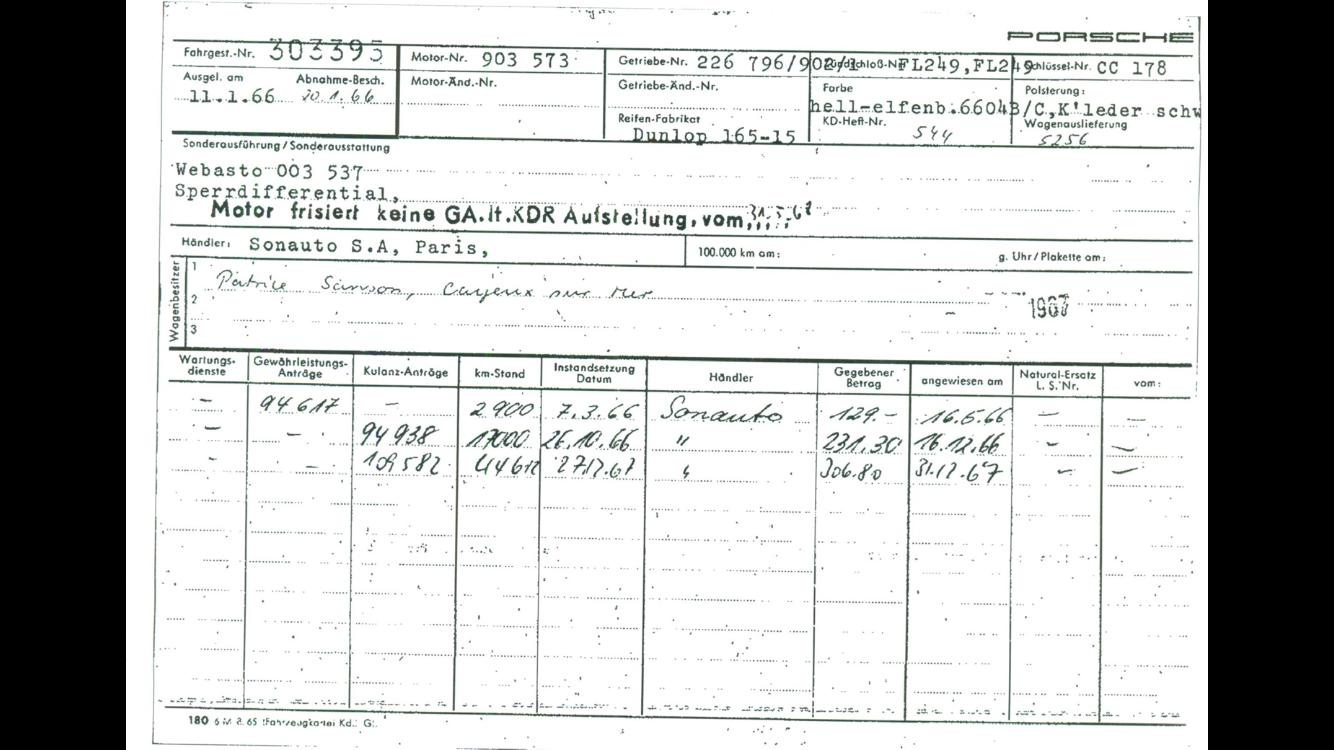 PORSCHE
Fahrgest.-Nr. 303395 Motor-Nr. 903 573 Getriebe-Nr. 226 796/902/1 FL249,FL249 Schlüssel-Nr. CC 178
Ausgel. am Abnahme-Besch. Motor-Änd.-Nr. Getriebe-Änd.-Nr. Farbe Polsterung:
11.1.66 20.1.66 hell-elfenb.6604 B/C,K'leder schw
Reifen-Fabrikat KD-Heft-Nr. Wagenauslieferung
Dunlop 165-15 544 5256
Sonderausführung/Sonderausstattung
Webasto 003 537
Sperrdifferential,
Motor frisiert keine GA.lt.KDR Aufstellung, vom
Händler: Sonauto S.A, Paris, 100.000 km am: g. Uhr/Plakette am:
Wagenbesitzer
1 Patrice Sanson, Cayeux sur Mer
2 1967
3
Wartungs-dienste Gewährleistungs-Anträge Kulanz-Anträge km-Stand Instandsetzung Datum Händler Gegebener Betrag angewiesen am Natural-Ersatz L. S. Nr. vom:
– 94 617 – 2 900 7.3.66 Sonauto 129.- 16.5.66 – –
– – 94 938 17000 26.10.66 " 231.30 16.12.66 – –
– – 109 582 " 306.80 – –
180 6 M 8.65 (Fahrzeugkartei Kd.